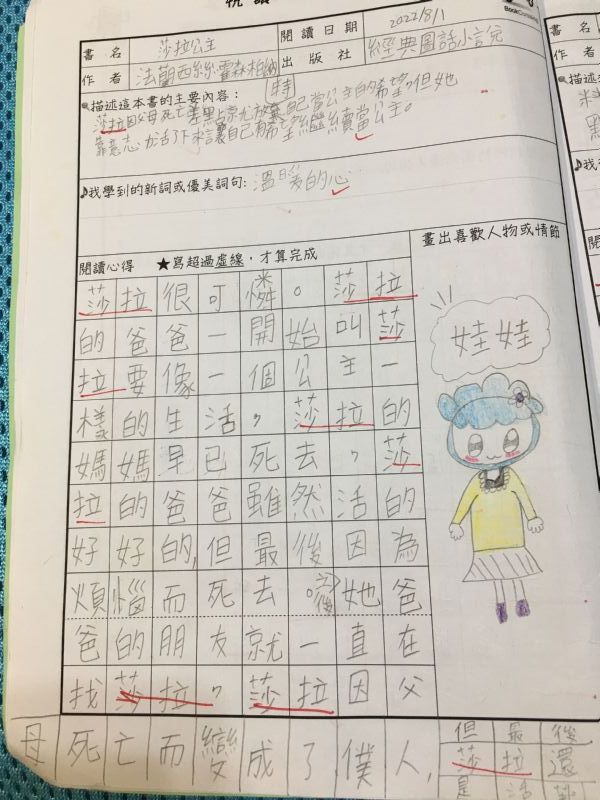 書名 莎拉公主 閱讀日期 2022/8/1
作者 法蘭西絲霍森柏納特 出版社 經典圖話小說
描述這本書的主要內容:
莎拉因父母死亡差點就放棄自己當公主的希望,但她
靠意志力活了下來讓自己有希望繼續當公主。
我學到的新詞或優美詞句:溫暖的心
閱讀心得 ★寫超過虛線,才算完成
畫出喜歡人物或情節
莎拉很可憐。莎拉
的爸爸一開始叫莎
拉要像一個公主一
樣的生活,莎拉的
媽媽早已死去,莎
拉的爸爸雖然活的
好好的,但最後因為
煩惱而死去,後她爸
爸的朋友就一直在
找莎拉,莎拉因父
母死亡而變成了僕人,
但最後
莎拉還
是活
娃娃